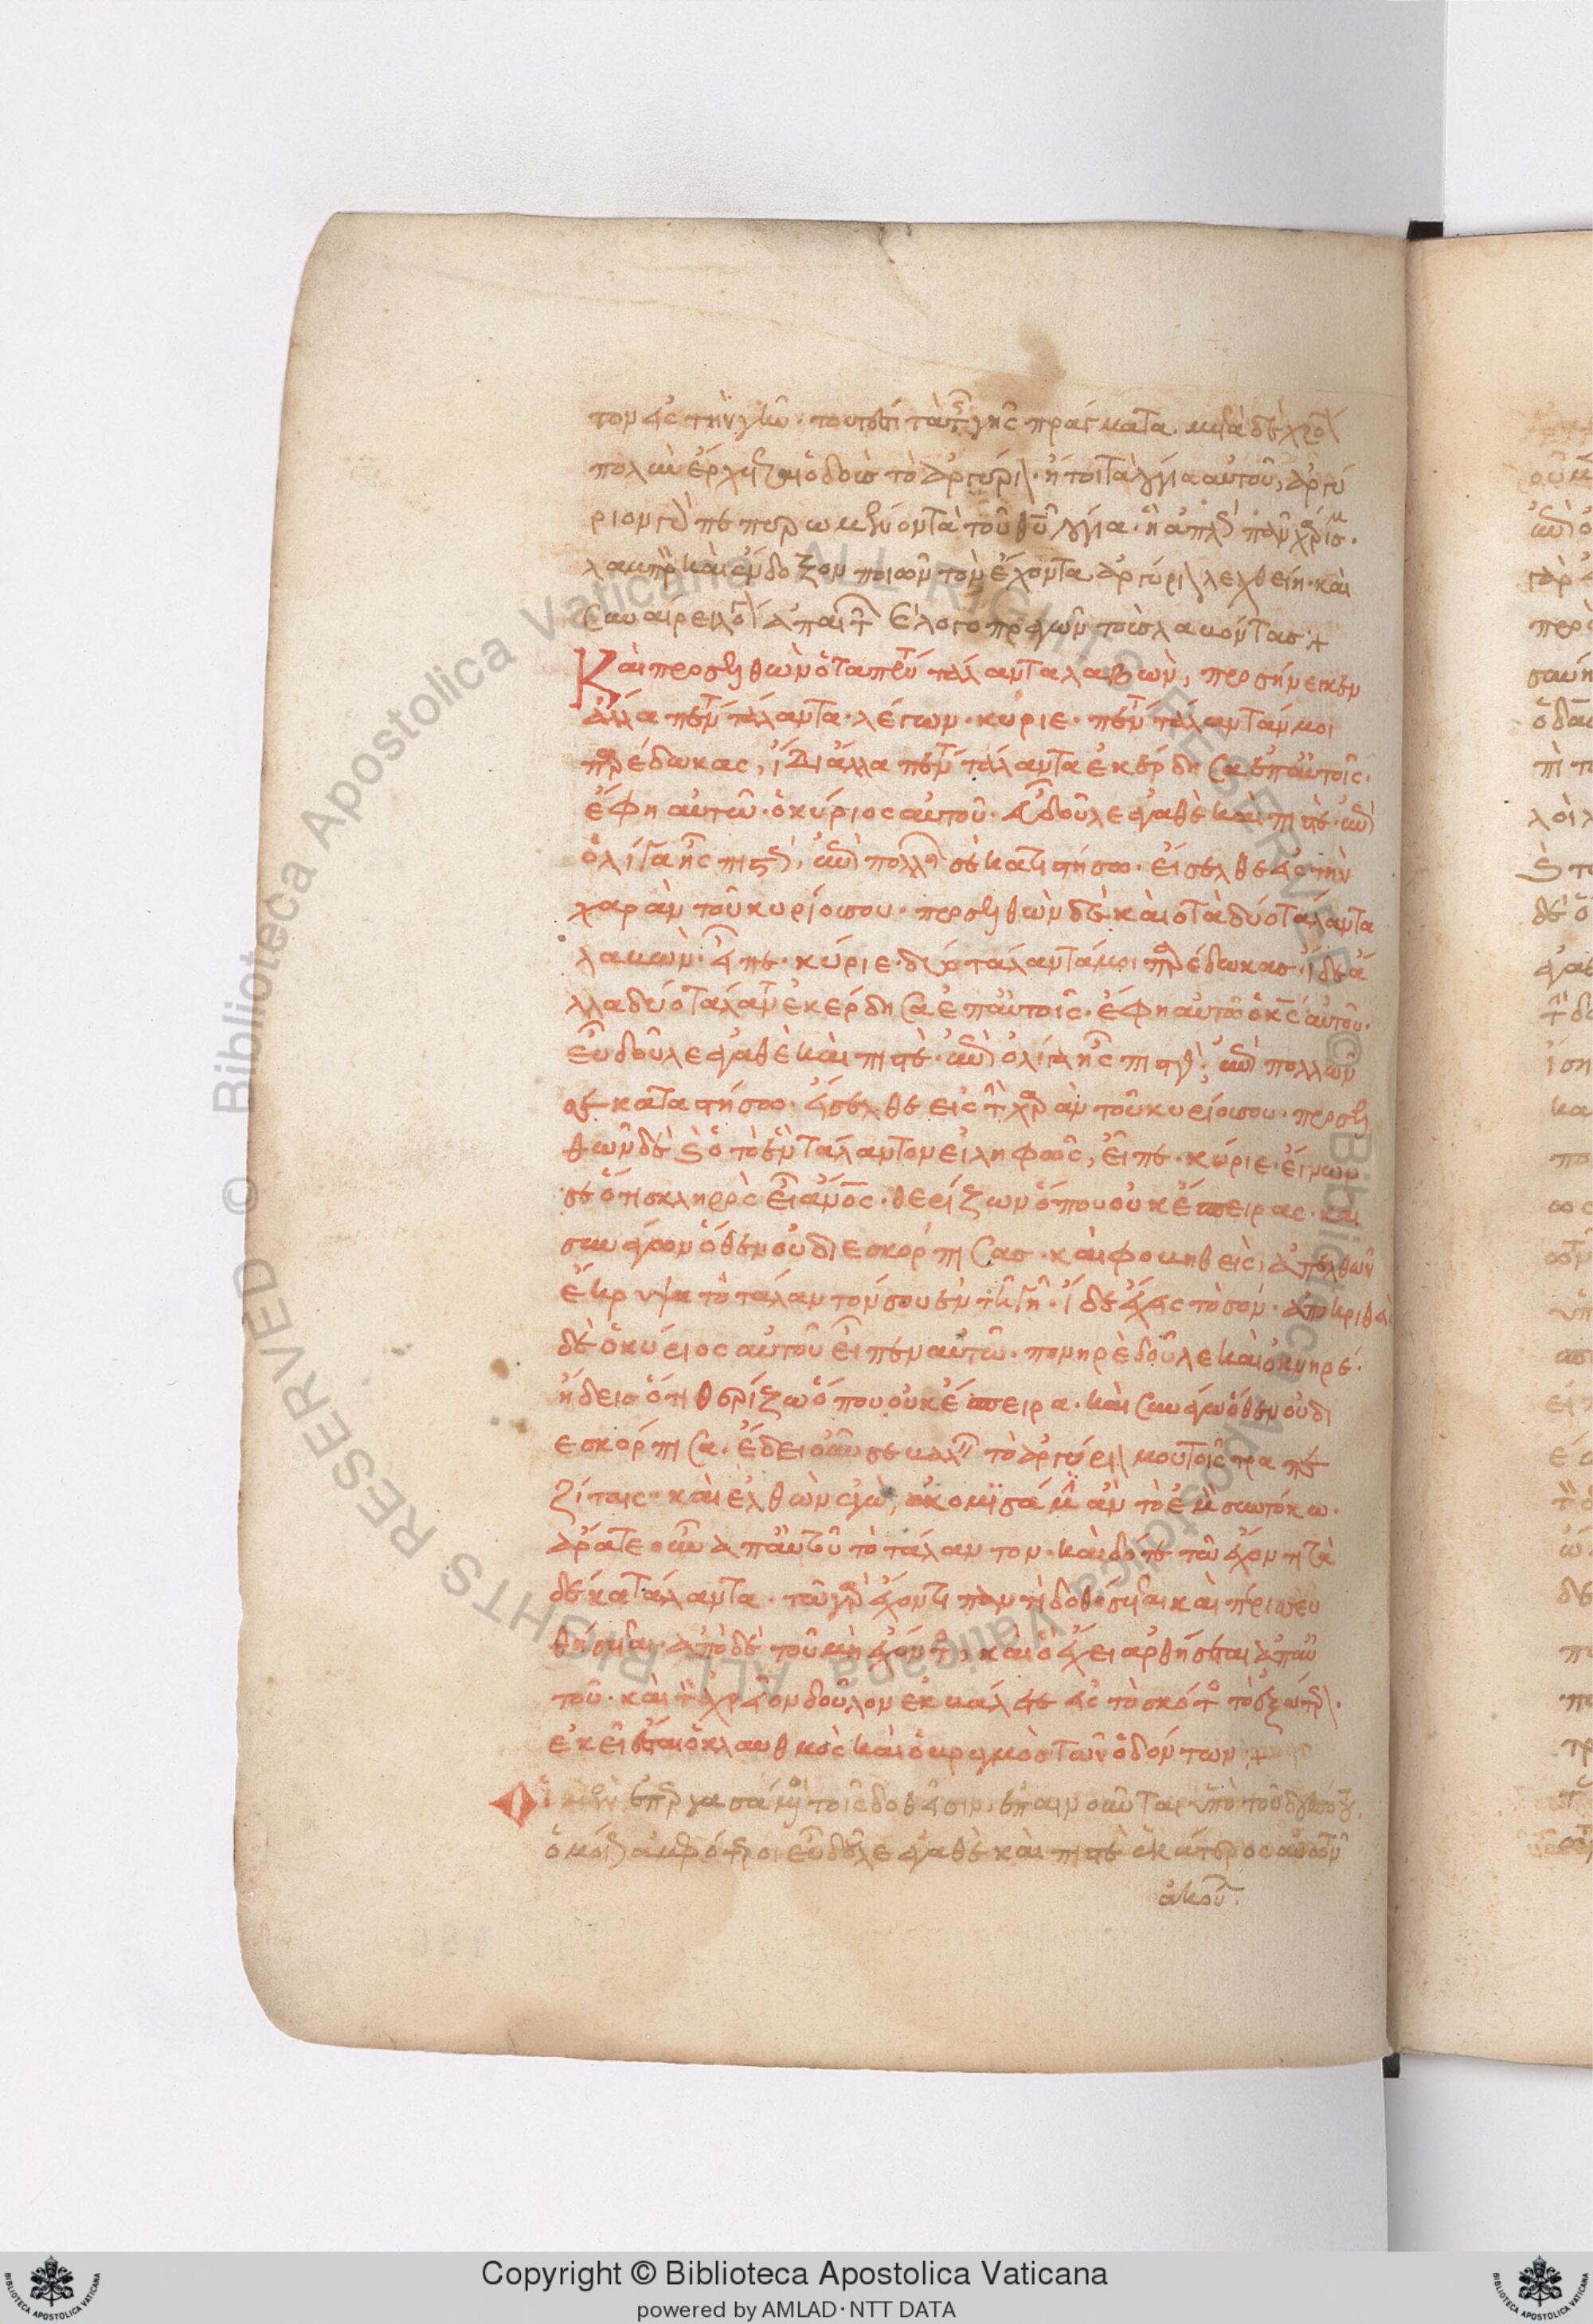 τον εἰς τὴν γῆν· τουτέστι τὰ τῆς γῆς πράγματα. μετὰ δὲ χρόνον
πολὺν ἔρχεται ὁ δοὺς τὸ ἀργύριον· ἤτοι τὰ λόγια αὐτοῦ, ἀργύ
ριον γὰρ πεπυρωμένον τὰ τοῦ θεοῦ λόγια· ἢ ἁπλῶς πᾶν χάρισμα·
λαμπρὸν καὶ ἔνδοξον ποιοῦν τὸν ἔχοντα ἀργύριον λεχθείη· καὶ
συναίρει λόγον ἀπαιτῶν τοὺς λαβόντας +
Καὶ προσελθὼν ὁ τὰ πέντε τάλαντα λαβὼν, προσήνεγκεν
ἄλλα πέντε τάλαντα· λέγων· κύριε· πέντε τάλαντά μοι
παρέδωκας, ἴδε ἄλλα πέντε τάλαντα ἐκέρδησα ἐπ' αὐτοῖς·
ἔφη αὐτῶ· ὁ κύριος αὐτοῦ· εὖ δοῦλε ἀγαθὲ καὶ πιστὲ· ἐπὶ
ὀλίγα ἦς πιστός, ἐπὶ πολλῶν σὲ καταστήσω· εἴσελθε εἰς τὴν
χαρὰν τοῦ κυρίου σου· προσελθὼν δὲ καὶ ὁ τὰ δύο τάλαντα
λαβὼν· εἶπε· κύριε· δύο τάλαντά μοι παρέδωκας· ἴδε ἄ
λλα δύο τάλαντα ἐκέρδησα ἐπ' αὐτοῖς· ἔφη αὐτῶ ὁ κς αὐτοῦ·
εὖ δοῦλε ἀγαθὲ καὶ πιστὲ· ἐπὶ ὀλίγα ἦς πιστός· ἐπὶ πολλῶν
σε καταστήσω· εἴσελθε εἰς τὴν χαρὰν τοῦ κυρίου σου· προσελ
θὼν δὲ καὶ ὁ τὸ ἓν τάλαντον εἰληφὼς, εἶπε· κύριε· ἔγνων
σε ὅτι σκληρὸς εἶ ἄνος· θερίζων ὅπου οὐκ ἔσπειρας· καὶ
συνάγων ὅθεν οὐ διεσκόρπισας· καὶ φοβηθεὶς, ἀπελθὼν
ἔκρυψα τὸ τάλαντόν σου ἐν τῆ γῆ· ἴδε ἔχεις τὸ σόν· ἀποκριθεὶς
δὲ ὁ κύριος αὐτοῦ εἶπεν αὐτῶ· πονηρὲ δοῦλε καὶ ὀκνηρέ·
ἤδεις ὅτι θερίζω ὅπου οὐκ ἔσπειρα· καὶ συνάγω ὅθεν οὐ δι
εσκόρπισα· ἔδει οὖν σε βαλεῖν τὸ ἀργύριον μου τοῖς τραπε
ζίταις· καὶ ἐλθὼν ἐγὼ, ἐκομισάμην ἂν τὸ ἐμὸν σὺν τόκω·
ἄρατε οὖν ἀπ' αὐτοῦ τὸ τάλαντον· καὶ δότε τῶ ἔχοντι τὰ
δέκα τάλαντα· τῶ γὰρ ἔχοντι παντὶ δοθήσεται καὶ περισσευ
θήσεται· ἀπὸ δὲ τοῦ μὴ ἔχοντος, καὶ ὃ ἔχει ἀρθήσεται ἀπ' αὐ
τοῦ· καὶ τὸν ἀχρεῖον δοῦλον ἐκβάλετε εἰς τὸ σκότος τὸ ἐξώτερον·
ἐκεῖ ἔσται ὁ κλαυθμὸς καὶ ὁ βρυγμὸς τῶν ὀδόντων +
Οἱ μὲν ἐργασάμενοι τοῖς δοθεῖσιν, ἐπαινοῦνται ὑπὸ τοῦ δεσπότου·
ὁμοίως ἀμφότεροι εὖ δοῦλε ἀγαθὲ καὶ πιστὲ ἑκάτερος αὐτῶν
ἀκού